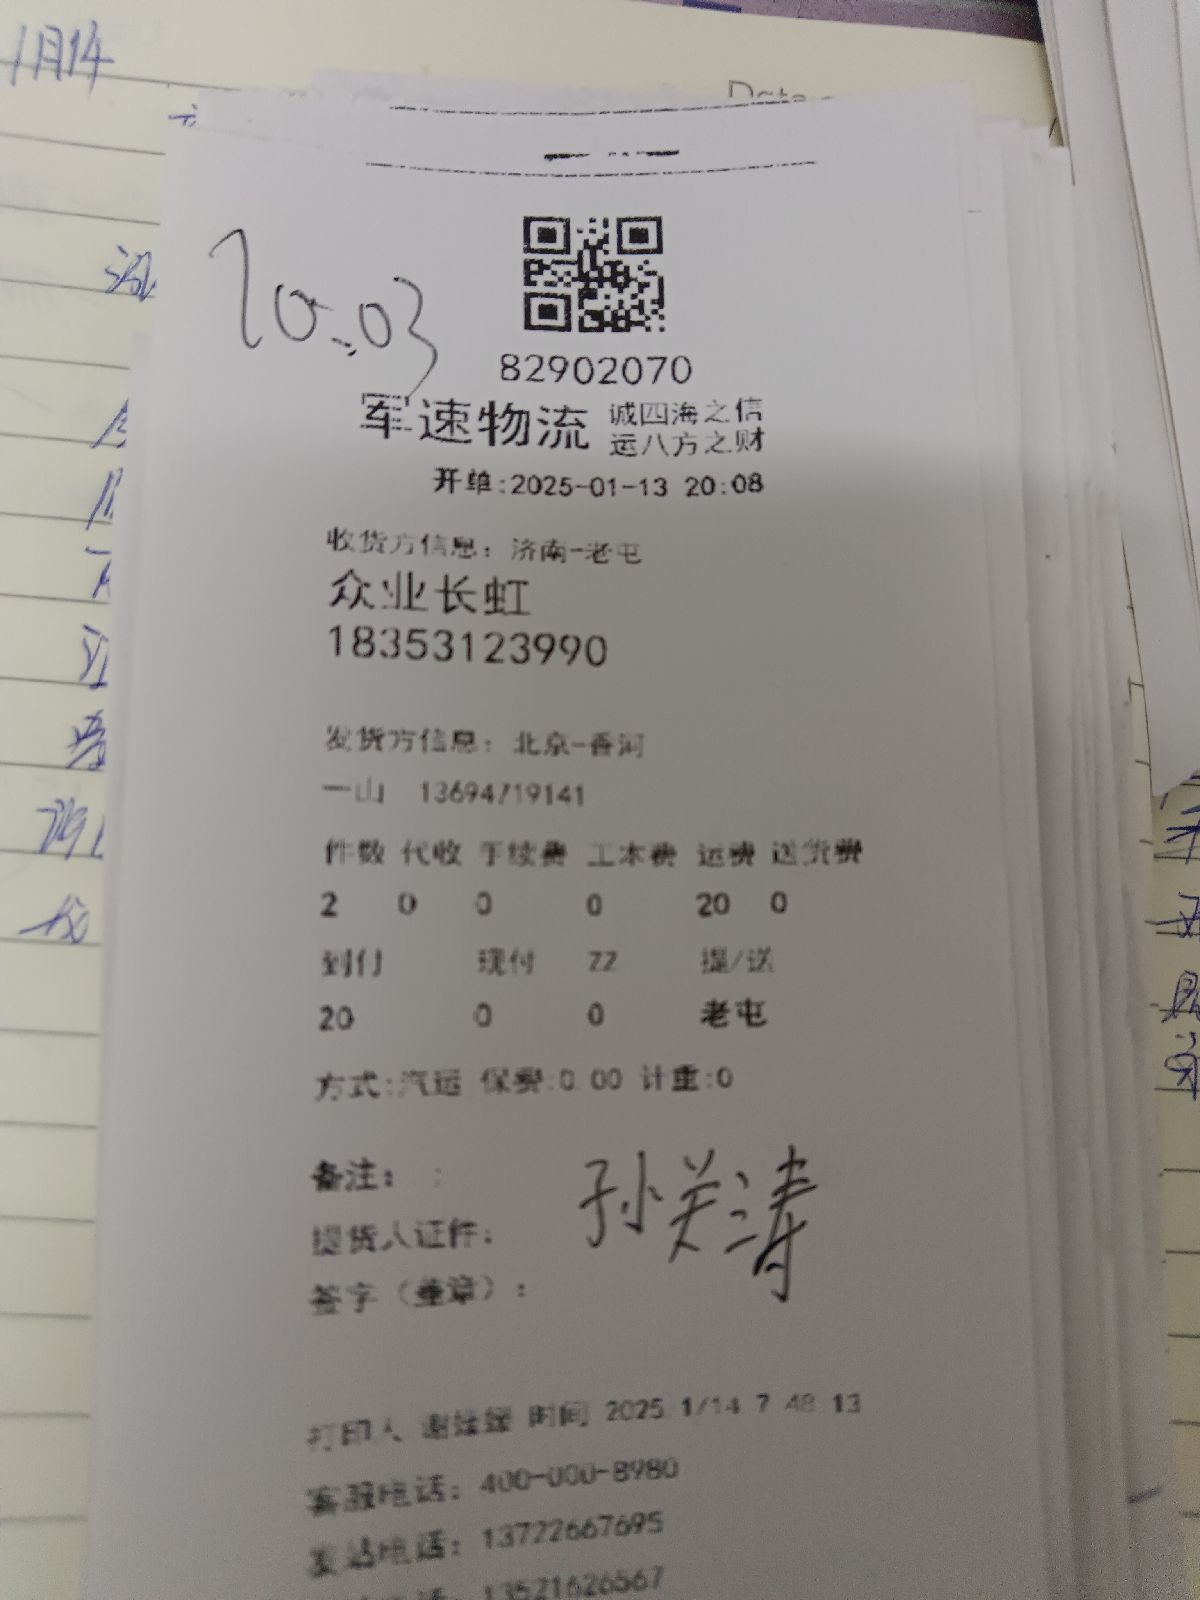 1月14
Date
20:03
82902070
军速物流 诚四海之信
运八方之财
开单:2025-01-13 20:08
收货方信息: 济南-老屯
众业长虹
18353123990
发货方信息: 北京-香河
一山 13694719141
件数 代收 手续费 工本费 运费 送货费
2 0 0 0 20 0
到付 现付 ZZ 提/送
20 0 0 老屯
方式:汽运 保费:0.00 计重:0
备注: :
提货人证件:
孙关涛
签字(盖章):
打印人 谢媛媛 时间 2025/1/14 7:48:13
客服电话: 400-000-8980
发站电话: 13722667695
电话: 13521626567